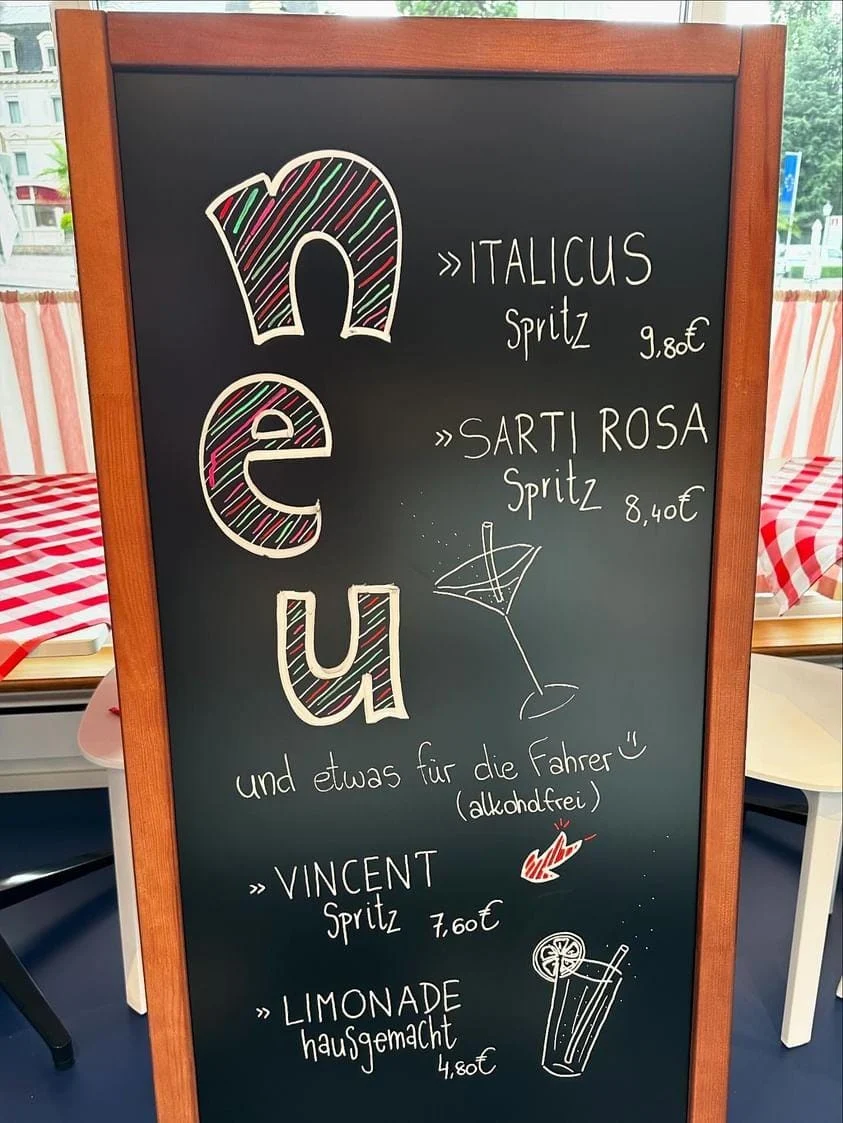 neu
» ITALICUS
Spritz 9,80€
» SARTI ROSA
Spritz 8,40€
und etwas für die Fahrer
(alkoholfrei)
» VINCENT
Spritz 7,60€
» LIMONADE
hausgemacht
4,80€